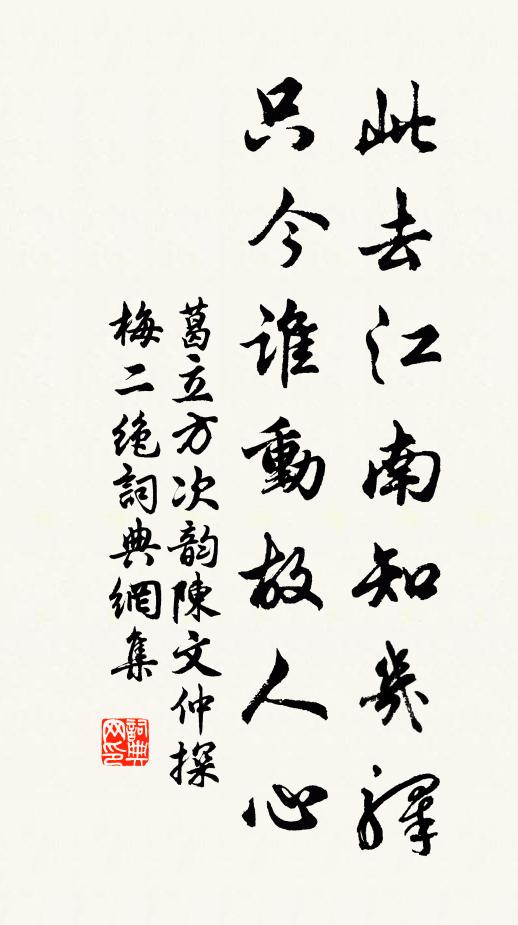 此去江南知幾驛
只今誰動故人心
葛立方次韵陳文仲探
梅二絶詞典網集
詞典網印